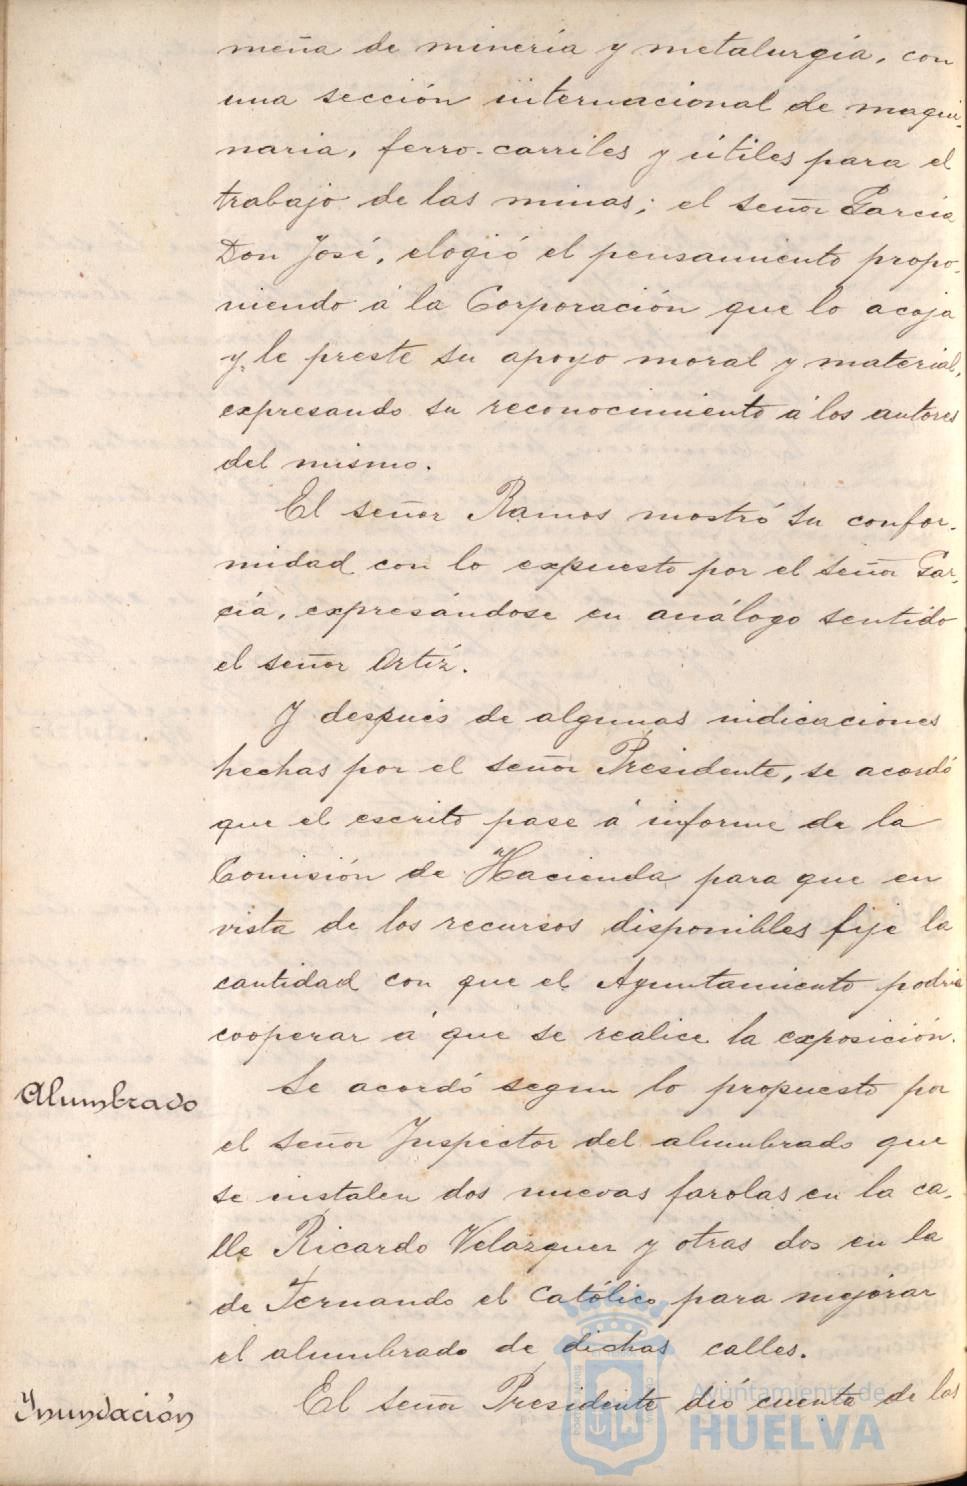 meña de minería y metalurgía, con
una sección internacional de maqui-
naria, ferro-carriles y útiles para el
trabajo de las minas; el señor García
Don José, elogió el pensamiento propo-
niendo á la Corporación que lo acoja
y le preste su apoyo moral y material,
expresando su reconocimiento á los autores
del mismo.
El señor Ramos mostró su confor-
midad con lo expuesto por el señor Gar-
cía, expresándose en análogo sentido
el señor Ortíz.
Y después de algunas indicaciones
hechas por el señor Presidente, se acordó
que el escrito pase á informe de la
Comisión de Hacienda para que en
vista de los recursos disponibles fije la
cantidad con que el Ayuntamiento podria
cooperar á que se realice la exposición.
Alumbrado
Se acordó segun lo propuesto por
el señor Inspector del alumbrado que
se instalen dos nuevas farolas en la ca-
lle Ricardo Velazquez y otras dos en la
de Fernando el Católico para mejorar
el alumbrado de dichas calles.
Inundación
El señor Presidente dió cuenta de los
Ayuntamiento de
HUELVA